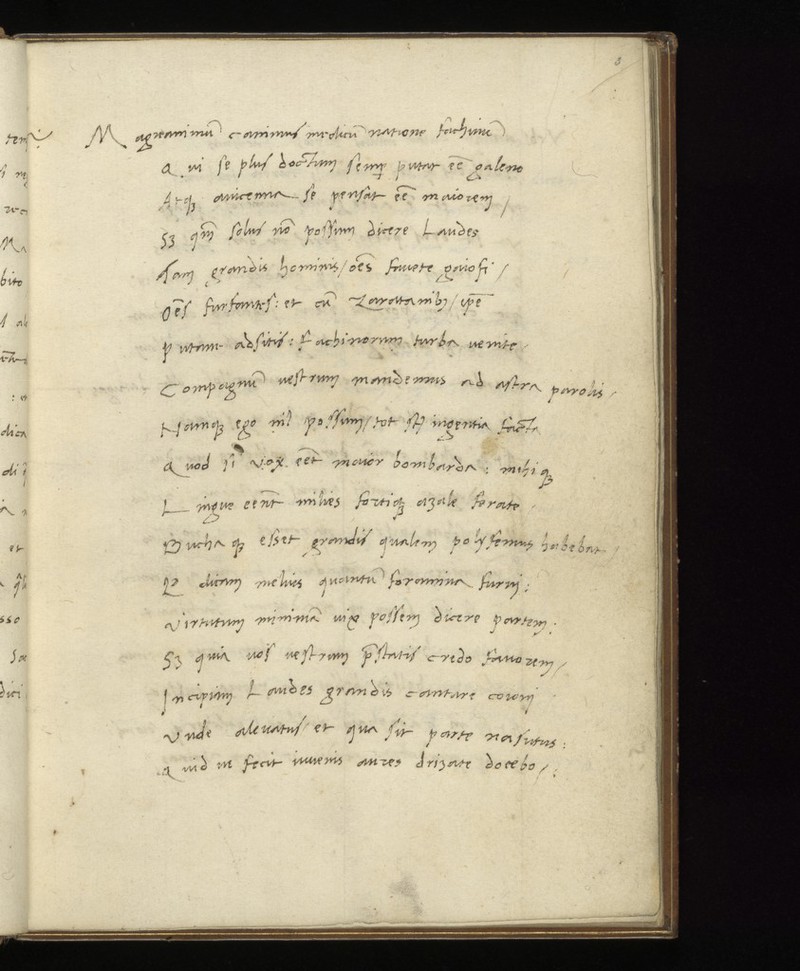 Magnanimũ canimus medicũ natione fachinũ
Qui se plus doctum semp putat eẽ galeno
Atqȝ avicenna se pensat eẽ maiorem /
Sȝ qm̃ solus nõ possum dicere Laudes
Tam grandis hominis / oẽs favete gaiofi /
Oẽs furfantes : et cũ Zaratanibȝ /
putane adsitis : fachinorum turba venite
Compagnũ vestrum mandemus ad astra parolis /
Namqȝ ego nil possum / tot st̃ ingentia facta
Quod si vox eẽt maior bombarda : mihiqȝ
Lingue eẽnt milies fortiqȝ azale ferate
Buchaqȝ esset grandis qualem polyfemus habebat /
dicam melius quantũ foramina furni :
Virtutum minimã vix possem dicere partem .
Sȝ quia vos vestrum p̃statis credo favorem /
Incipiam Laudes grandis cantare coioni
Vnde alevatus / et qua sit parte nasutus :
Quid in fecit iuvenis aures drizate docebo / :